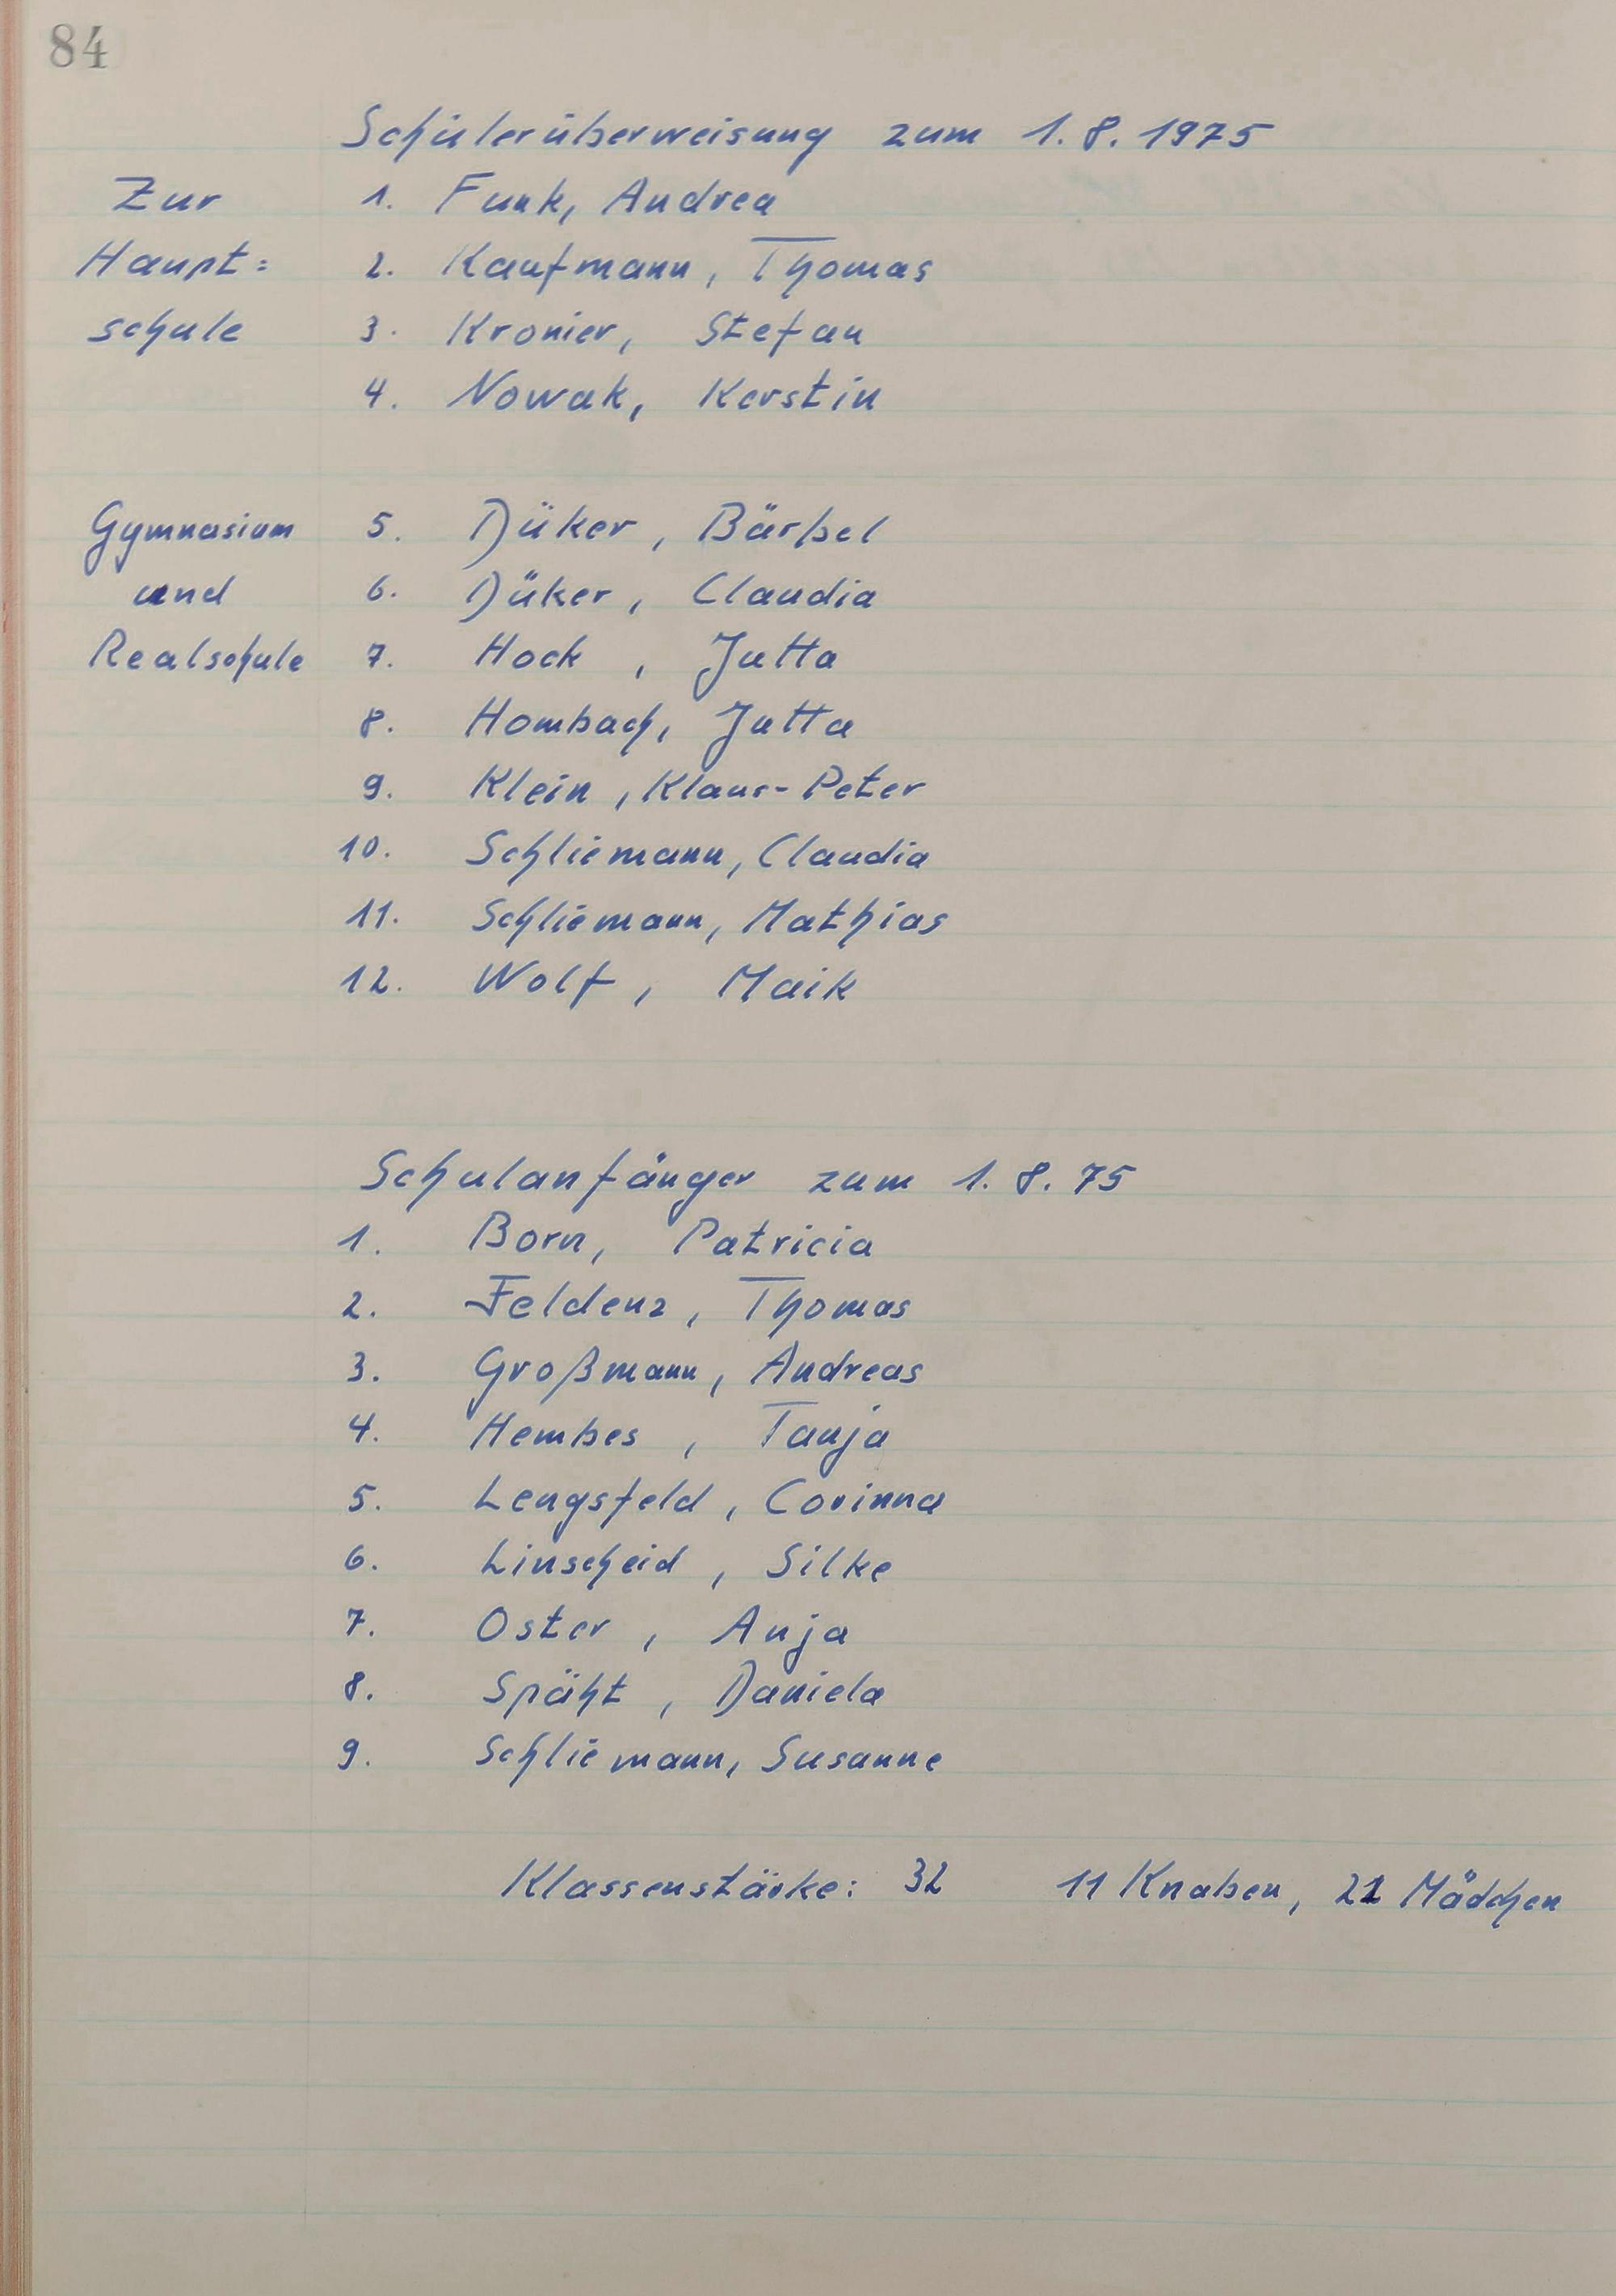 84
Schülerüberweisung zum 1.8.1975
Zur 1. Funk, Andrea
Haupt= 2. Kaufmann, Thomas
schule 3. Kronier, Stefan
4. Nowak, Kerstin
Gymnasium 5. Düker, Bärbel
und 6. Düker, Claudia
Realschule 7. Hock, Jutta
8. Hombach, Jutta
9. Klein, Klaus-Peter
10. Schliemann, Claudia
11. Schliemann, Mathias
12. Wolf, Maik
Schulanfänger zum 1.8.75
1. Born, Patricia
2. Feldenz, Thomas
3. Großmann, Andreas
4. Hembes, Tanja
5. Lengsfeld, Corinna
6. Linscheid, Silke
7. Oster, Anja
8. Späht, Daniela
9. Schliemann, Susanne
Klassenstärke: 32 11 Knaben, 21 Mädchen